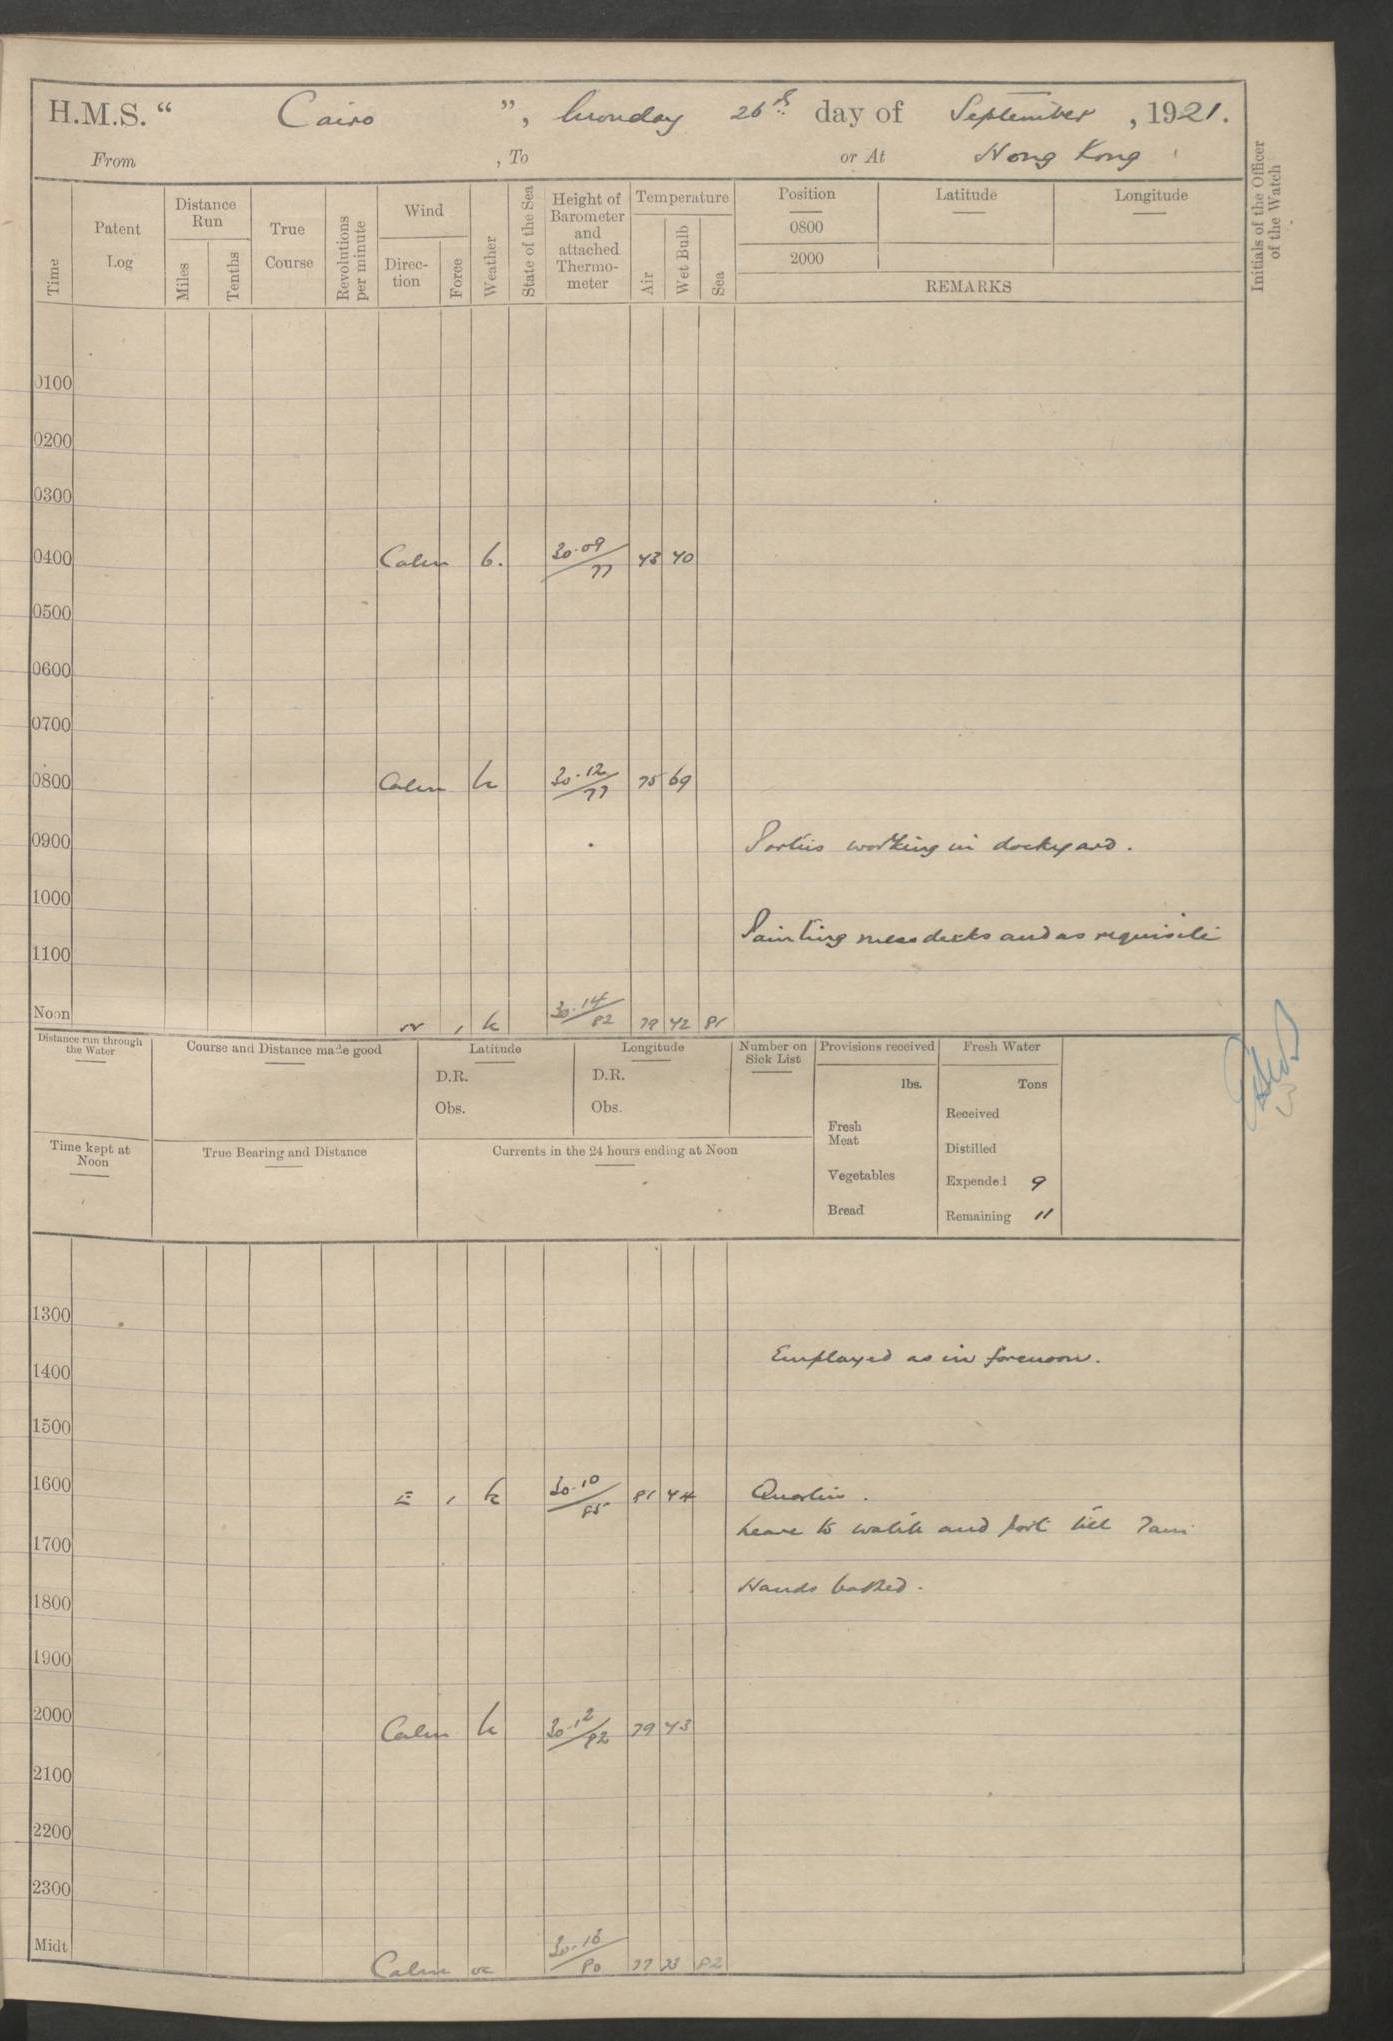 H.M.S. “ Cairo ”, Monday 26th day of September, 1921.
From , To or At Hong Kong
Time
Patent Log
Distance Run
Miles
Tenths
True Course
Revolutions per minute
Wind
Direc-tion
Force
Weather
State of the Sea
Height of Barometer and attached Thermo-meter
Temperature
Air
Wet Bulb
Sea
Position
0800
2000
Latitude
Longitude
REMARKS
Initials of the Officer of the Watch
0100
0200
0300
0400 Calm b. 30.09/77 73 70
0500
0600
0700
0800 Calm b 30.12/77 75 69
0900 Parties working in dockyard.
1000
Painting messdecks and as requisite
1100
Noon W 1 b 30.14/82 79 72 81
Distance run through the Water
Course and Distance made good
Latitude
D.R.
Obs.
Longitude
D.R.
Obs.
Number on Sick List
Provisions received
lbs.
Fresh Meat
Vegetables
Bread
Fresh Water
Tons
Received
Distilled
Expended 9
Remaining 11
Time kept at Noon
True Bearing and Distance
Currents in the 24 hours ending at Noon
1300
Employed as in forenoon.
1400
1500
1600 E 1 b 30.10/85 81 74 Quarters.
Leave to watch and part till 7am
1700
Hands bathed.
1800
1900
2000 Calm b 30.12/82 79 73
2100
2200
2300
Midt Calm 30.13/80 77 73 82